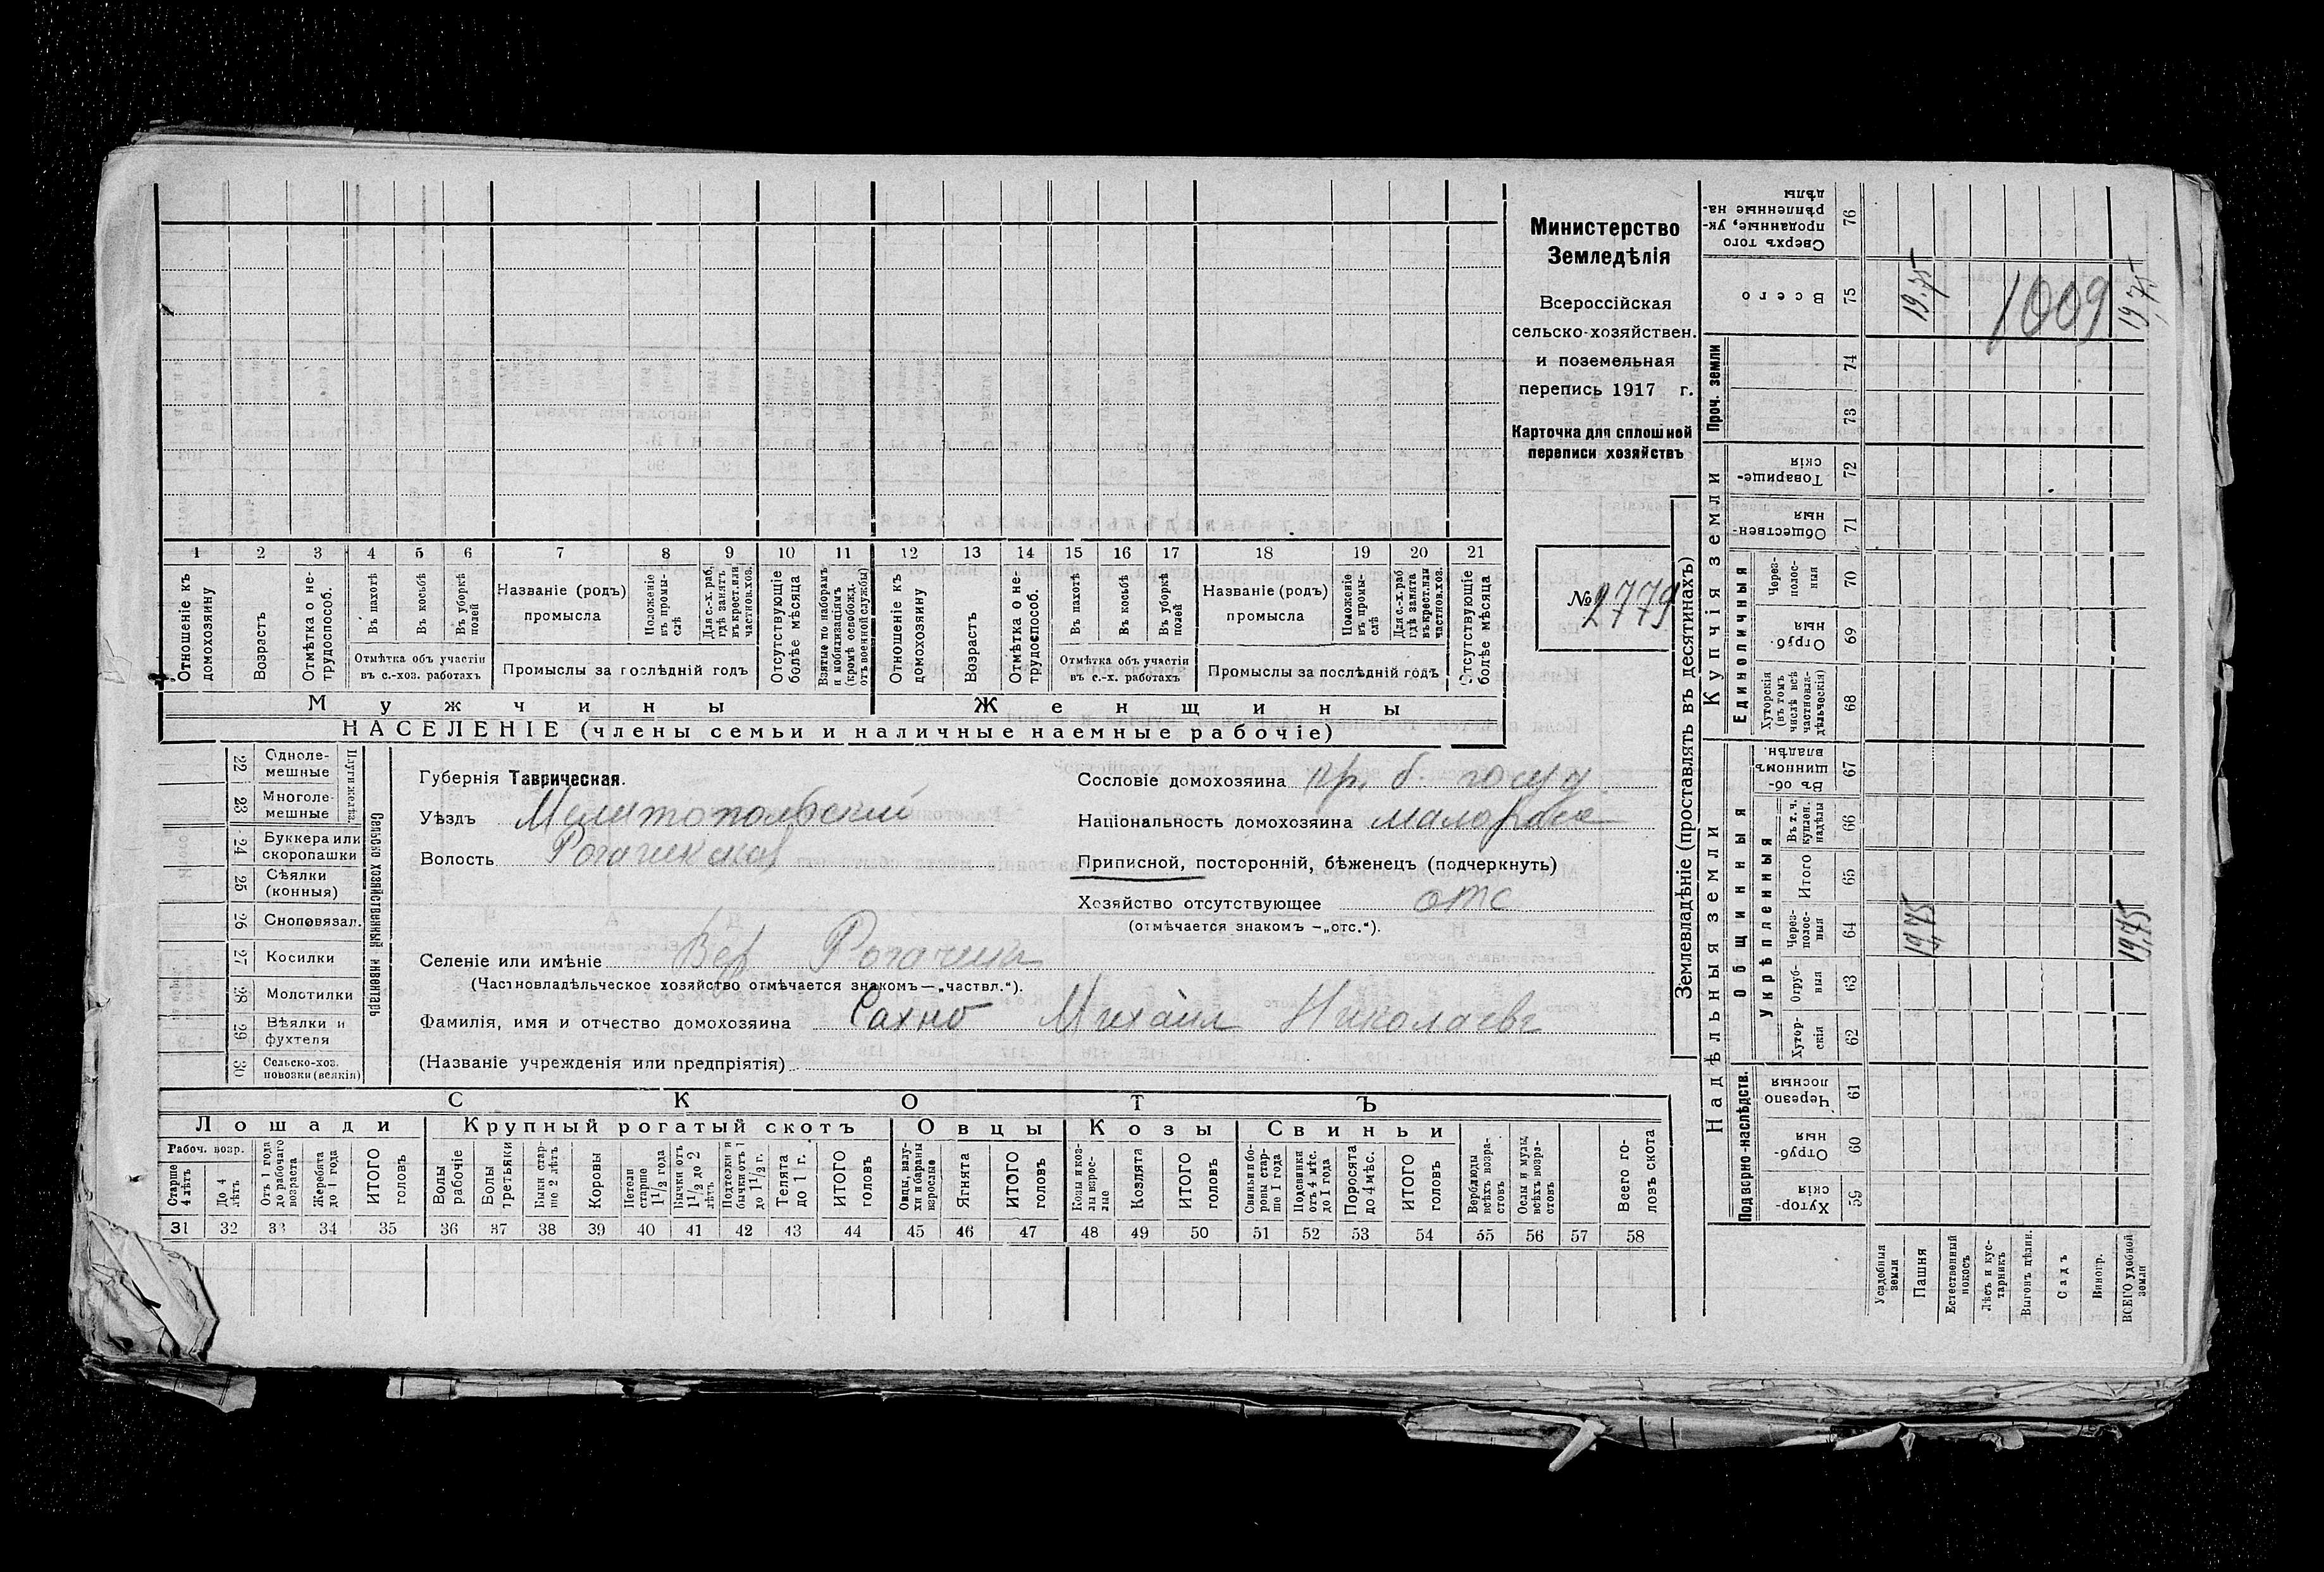 1 2 3 4 5 6 7 8 9 10 11 12 13 14 15 16 17 18 19 20 21
Отношеніе къ домохозяину
Возрастъ
Отмѣтка о не-трудоспособ.
Въ пахотѣ
Въ косьбѣ
Въ уборкѣ полей
Отмѣтка объ участіи
въ с.-хоз. работахъ
Названіе (родъ)
промысла
Положеніе въ промы-слѣ
Для с.-х. раб. гдѣ занятъ въ крест. или частнов. хоз.
Промыслы за послѣдній годъ
Отсутствующіе болѣе мѣсяца
Взятые по наборамъ и мобилизаціямъ (кромѣ освобожд. отъ военной службы)
Отношеніе къ домохозяину
Возрастъ
Отмѣтка о не-трудоспособ.
Въ пахотѣ
Въ косьбѣ
Въ уборкѣ полей
Отмѣтка объ участіи
въ с.-х. работахъ
Названіе (родъ)
промысла
Положеніе въ промы-слѣ
Для с.-х. раб гдѣ занята въ крест. или частнов. хоз.
Промыслы за послѣдній годъ
Отсутствующіе болѣе мѣсяца
Мужчины Женщины
НАСЕЛЕНІЕ (члены семьи и наличные наемные рабочіе)
Министерство
Земледѣлія
Всероссійская
сельско-хозяйствен.
и поземельная
перепись 1917 г.
Карточка для сплошной
переписи хозяйствъ
№ 2779
Сельско хозяйственный инвентарь
Плуги желѣз.
22 Одноле-мешные
23 Многоле-мешные
24 Буккера или скоропашки
25 Сѣялки (конныя)
26 Сноповязал.
27 Косилки
28 Молотилки
29 Вѣялки и фухтеля
30 Сельско-хоз. повозки (всякія)
Губернія Таврическая.
Уѣздъ Мелитопольский
Волость Рогачикская
Сословіе домохозяина кр. б. госуд
Національность домохозяина малоросс
Приписной, посторонній, бѣженецъ (подчеркнуть)
Хозяйство отсутствующее отс
(отмѣчается знакомъ —„отс.“).
Селеніе или имѣніе Вер Рогачик
(Частновладѣльческое хозяйство отмѣчается знакомъ—„частвл.“).
Фамилія, имя и отчество домохозяина Сахно Михаил Николаевъ
(Названіе учрежденія или предпріятія)
СКОТЪ
Лошади Крупный рогатый скотъ Овцы Козы Свиньи
Рабоч. возр.
Старше 4 лѣтъ
До 4 лѣтъ
Отъ 1 года до рабочаго возраста
Жеребята до 1 года
ИТОГО головъ
Волы рабочіе
Волы третьяки
Быки стар-ше 2 лѣтъ
Коровы
Нетели старше 1 1/2 года
Бычки отъ 1 1/2 до 2 лѣтъ
Подтелки и бычки отъ 1 до 1 1/2 г.
Телята до 1 г.
ИТОГО головъ
Овцы, валу-хи и бараны взрослые
Ягнята
ИТОГО головъ
Козы и коз-лы взрос-лые
Козлята
ИТОГО головъ
Свиньи и бо-ровы стар-ше 1 года
Подсвинки отъ 4 мѣс. до 1 года
Поросята до 4 мѣс.
ИТОГО головъ
Верблюды всѣхъ возра-стовъ
Ослы и мулы, всѣхъ возра-стовъ
Всего го-ловъ скота
31 32 33 34 35 36 37 38 39 40 41 42 43 44 45 46 47 48 49 50 51 52 53 54 55 56 57 58
Землевладѣніе (проставлять въ десятинахъ)
Надѣльныя земли
Купчія земли
Проч. земли
Подворно-наслѣдств.
Общинныя
Укрѣпленныя
Единоличныя
Хутор-скія 59
Отруб-ныя 60
Черезпо лосныя 61
Хутор-скія 62
Отруб-ныя 63
Через-полос-ныя 64
Итого 65
Въ т. ч. куплен. надѣлы 66
Въ об-щинномъ владѣн. 67
Хуторскія (въ томъ числѣ всѣ частновла-дѣльческія) 68
Отруб-ныя 69
Через-полос-ныя 70
Обществен-ныя 71
Товарище-скія 72
73
74
Всего 75
Сверхъ того проданные, ук-рѣпленные на-дѣлы 76
Усадебныя земли
Пашня 19,75 19,75
Естественный покосъ
Лѣсъ и кус-тарникъ
Выгонъ цѣлин.
Садъ
Виногр.
ВСЕГО удобной земли 19,75 19,75
1009